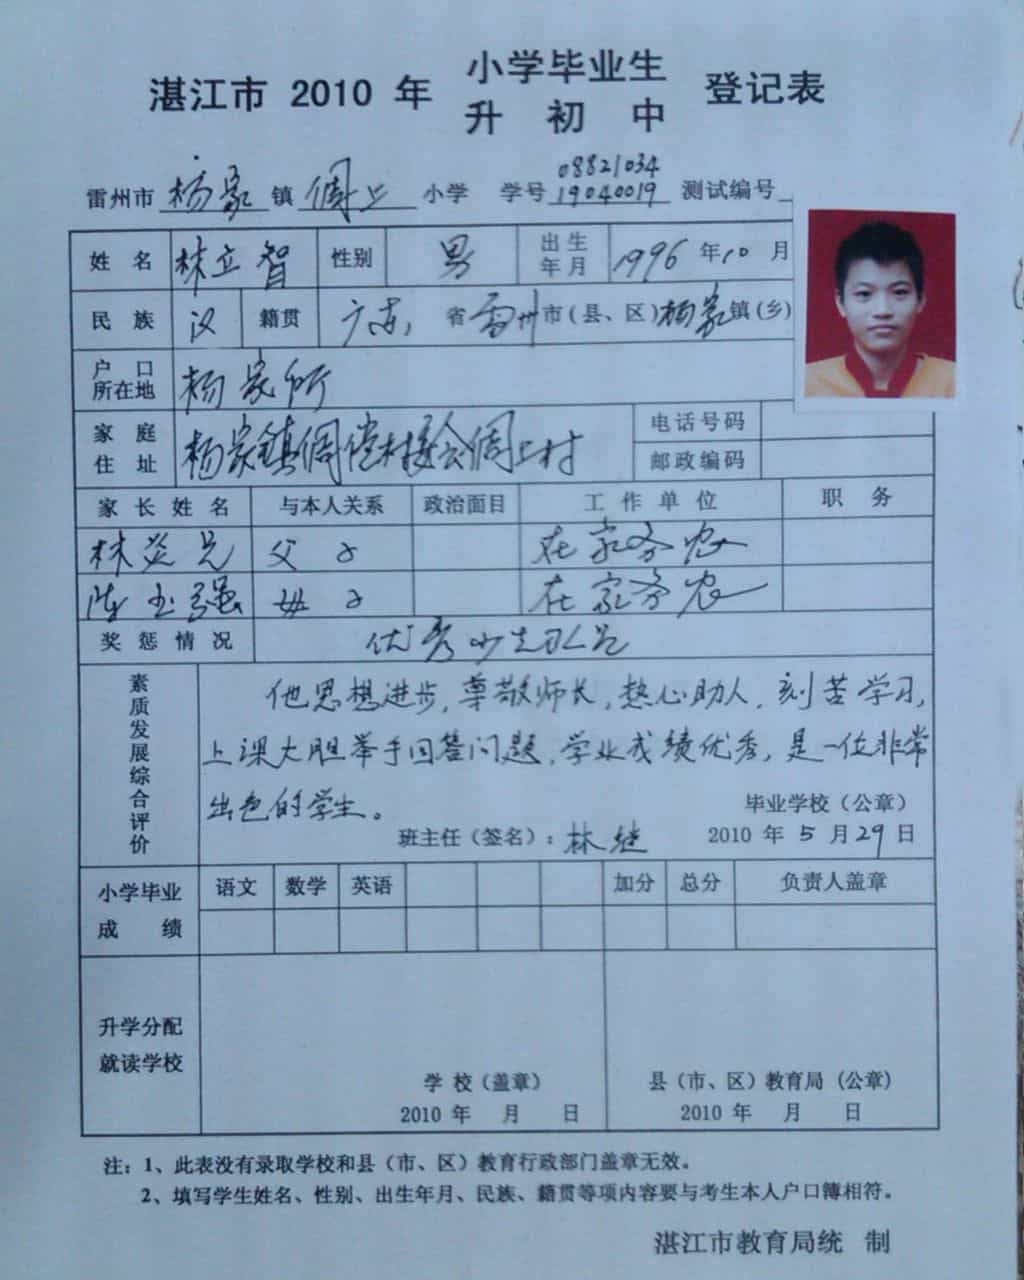 湛江市 2010 年 小学毕业生 升初中 登记表
雷州市 杨家 镇 倜上 小学 学号 08821034 19040019 测试编号
姓名 林立智 性别 男 出生年月 1996 年 10 月
民族 汉 籍贯 广东 省 雷州 市(县、区) 杨家 镇(乡)
户口所在地 杨家所
家庭住址 杨家镇 村 倜上村 电话号码
邮政编码
家长姓名 与本人关系 政治面目 工作单位 职务
林炎兄 父子 在家务农
陈玉强 母子 在家务农
奖惩情况 优秀少先队员
素质发展综合评价
他思想进步,尊敬师长,热心助人,刻苦学习,
上课大胆举手回答问题,学业成绩优秀,是一位非常
出色的学生。
毕业学校(公章)
班主任(签名): 林继 2010 年 5 月 29 日
小学毕业成绩 语文 数学 英语 加分 总分 负责人盖章
升学分配就读学校
学校(盖章) 县(市、区)教育局(公章)
2010 年 月 日 2010 年 月 日
注:1、此表没有录取学校和县(市、区)教育行政部门盖章无效。
2、填写学生姓名、性别、出生年月、民族、籍贯等项内容要与考生本人户口簿相符。
湛江市教育局统 制